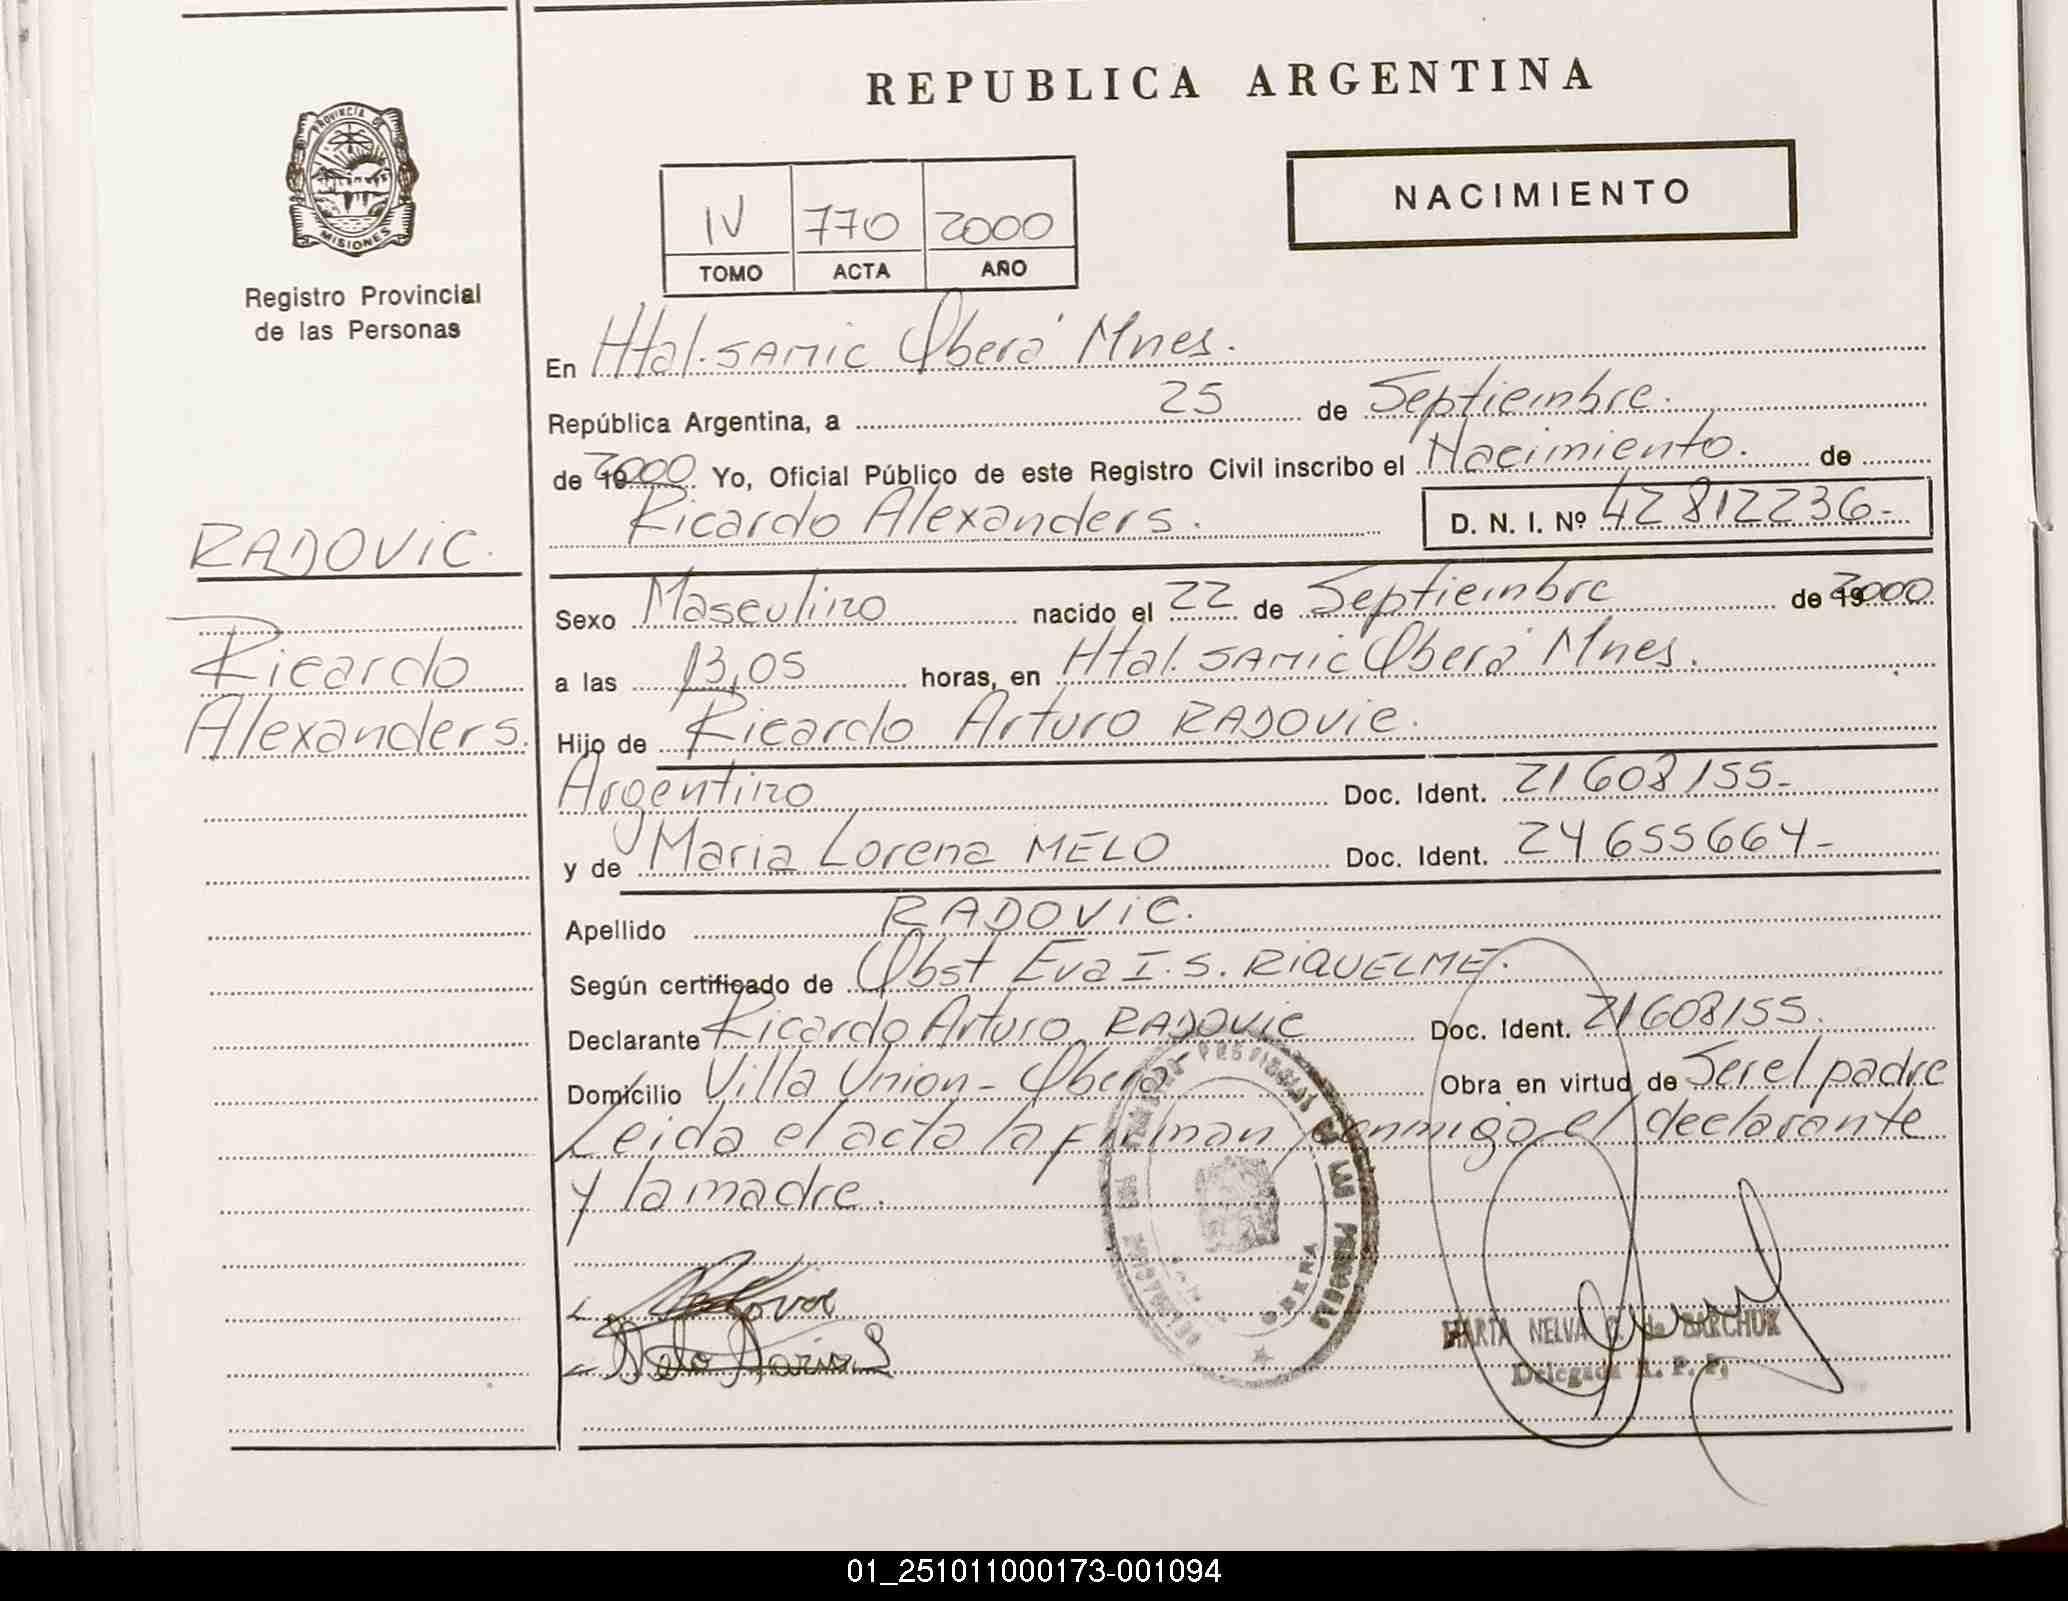 REPUBLICA ARGENTINA
PROVINCIA DE
MISIONES
Registro Provincial
de las Personas
NACIMIENTO
IV 770 2000
TOMO ACTA AÑO
En Htal. SAMIC Oberá Mnes.
República Argentina, a 25 de Septiembre.
de 2000 Yo, Oficial Público de este Registro Civil inscribo el Nacimiento. de
Ricardo Alexanders. D. N. I. Nº 42 812236-
RADOVIC.
Ricardo
Alexanders.
Sexo Masculino nacido el 22 de Septiembre de 2000
a las 13,05 horas, en Htal. SAMIC Oberá Mnes.
Hijo de Ricardo Arturo RADOVIC.
Argentino Doc. Ident. 21608155-
y de Maria Lorena MELO Doc. Ident. 24655664-
Apellido RADOVIC.
Según certificado de Obst Eva I. S. RIQUELME.
Declarante Ricardo Arturo RADOVIC Doc. Ident. 21608155.
Domicilio Villa Union - Oberá Obra en virtud de Ser el padre
Leida el acta la firman conmigo el declarante
y la madre.
DE LAS PERSONAS
OBERA
MARTA NELVA de SARCHUK
Delegada R. P. P.
01_251011000173-001094